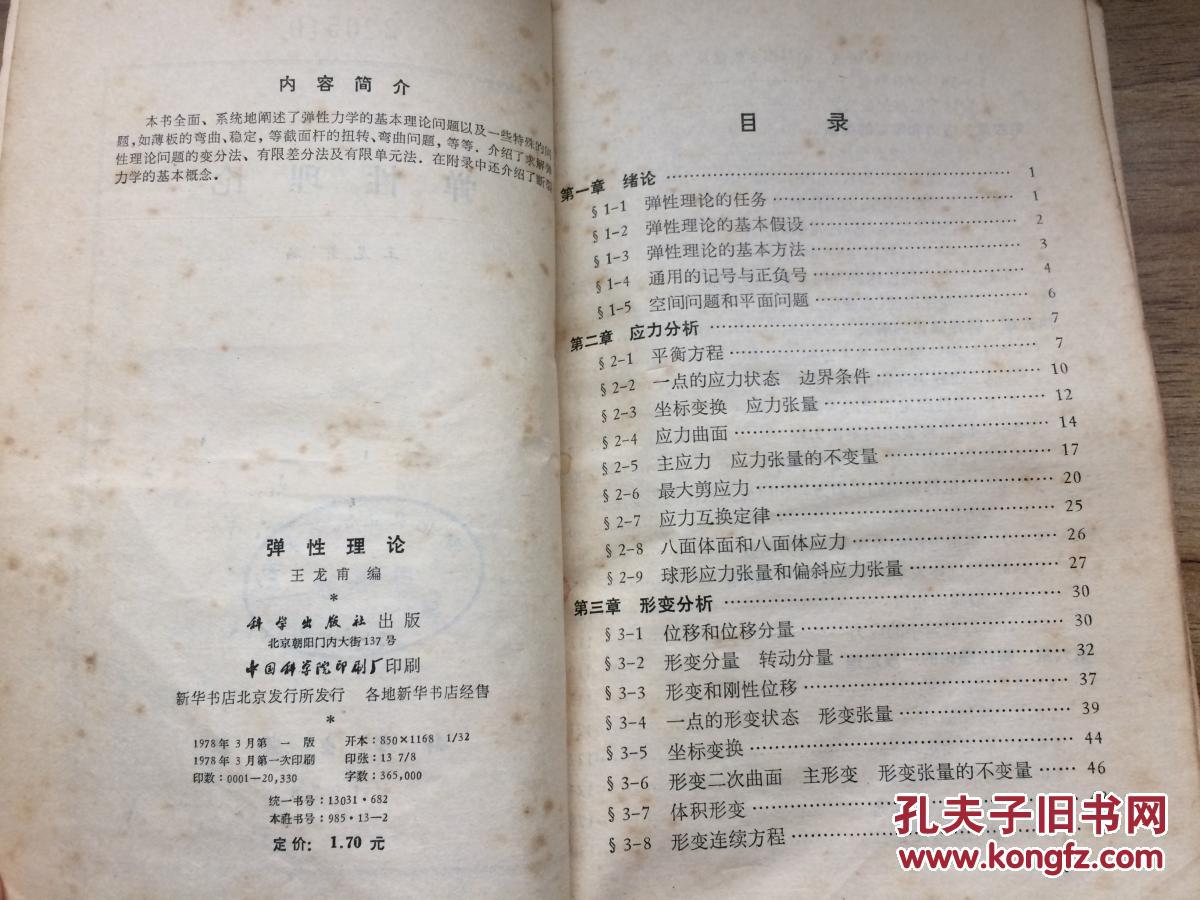 内容简介
本书全面、系统地阐述了弹性力学的基本理论问题以及一些特殊的
题，如薄板的弯曲、稳定，等截面杆的扭转、弯曲问题，等等．介绍了求解弹
性理论问题的变分法、有限差分法及有限单元法．在附录中还介绍了断裂
力学的基本概念．
弹性理论
王龙甫 编
*
科学出版社 出版
北京朝阳门内大街137号
中国科学院印刷厂印刷
新华书店北京发行所发行 各地新华书店经售
*
1978年3月第一版 开本：850×1168 1/32
1978年3月第一次印刷 印张：13 7/8
印数：0001—20,330 字数：365,000
统一书号：13031·682
本社书号：985·13—2
定价：1.70元
目 录
第一章 绪论 …… 1
§1-1 弹性理论的任务 …… 1
§1-2 弹性理论的基本假设 …… 2
§1-3 弹性理论的基本方法 …… 3
§1-4 通用的记号与正负号 …… 4
§1-5 空间问题和平面问题 …… 6
第二章 应力分析 …… 7
§2-1 平衡方程 …… 7
§2-2 一点的应力状态 边界条件 …… 10
§2-3 坐标变换 应力张量 …… 12
§2-4 应力曲面 …… 14
§2-5 主应力 应力张量的不变量 …… 17
§2-6 最大剪应力 …… 20
§2-7 应力互换定律 …… 25
§2-8 八面体面和八面体应力 …… 26
§2-9 球形应力张量和偏斜应力张量 …… 27
第三章 形变分析 …… 30
§3-1 位移和位移分量 …… 30
§3-2 形变分量 转动分量 …… 32
§3-3 形变和刚性位移 …… 37
§3-4 一点的形变状态 形变张量 …… 39
§3-5 坐标变换 …… 44
§3-6 形变二次曲面 主形变 形变张量的不变量 …… 46
§3-7 体积形变 ……
§3-8 形变连续方程 ……
孔夫子旧书网
www.kongfz.com